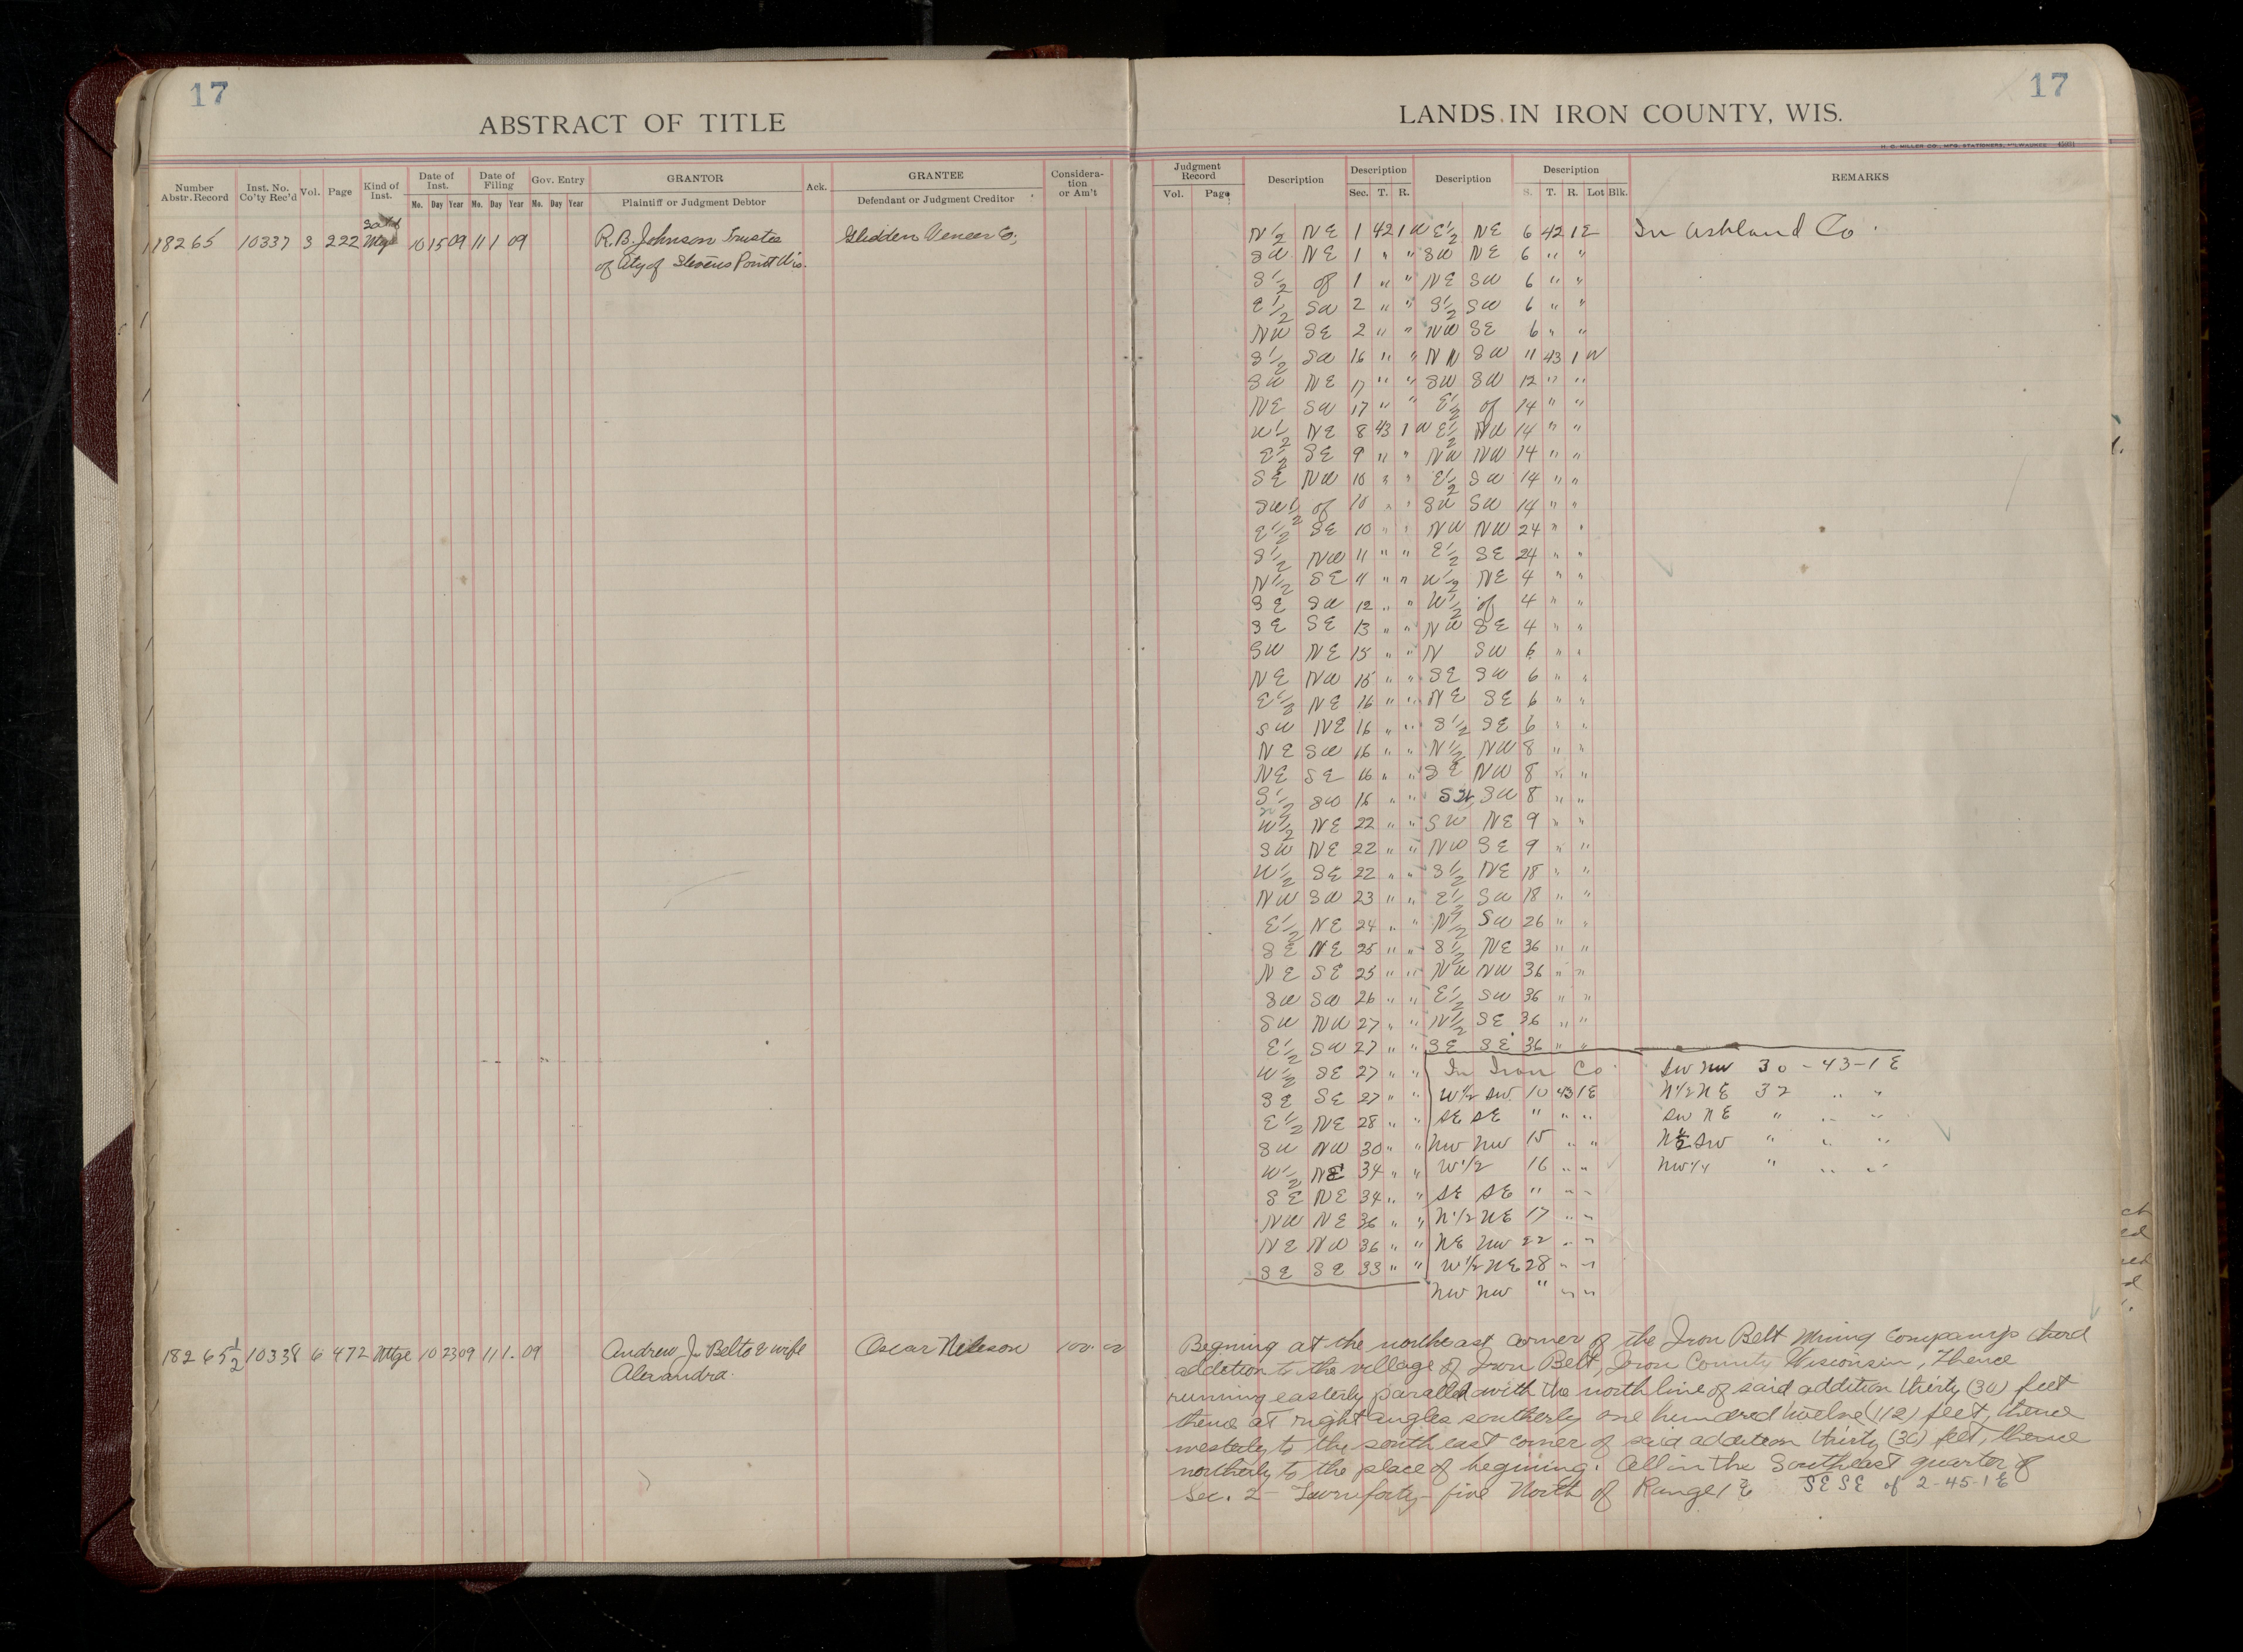 17
ABSTRACT OF TITLE
Number Abstr. Record Inst. No. Co'ty Rec'd Vol. Page Kind of Inst. Date of Inst. Date of Filing Gov. Entry GRANTOR Ack. GRANTEE Considera-tion or Am't
No. Day Year No. Day Year No. Day Year Plaintiff or Judgment Debtor Defendant or Judgment Creditor
18265 10337 3 222 Mtge 10 15 09 11 1 09 R. B. Johnson Trustee Glidden Veneer Co,
of City of Stevens Point Wis.
18265½ 10338 6 472 Mtge 10 23 09 11 1. 09 Andrew J. Belto & wife Oscar Nelson 100.00
Alexandra.
17
LANDS IN IRON COUNTY, WIS.
H. C. MILLER CO., MFG. STATIONERS, MILWAUKEE
Judgment Record Description Description Description Description REMARKS
Vol. Page Sec. T. R. S. T. R. Lot Blk.
N½ NE 1 42 1W E½ NE 6 42 1E In Ashland Co.
SW NE 1 " " SW NE 6 " "
S½ of 1 " " NE SW 6 " "
E½ SW 2 " " S½ SW 6 " "
NW SE 2 " " NW SE 6 " "
S½ SW 16 " " NW SW 11 43 1 W
SW NE 17 " " SW SW 12 " "
NE SW 17 " " E½ of 14 " "
W½ NE 8 43 1 W E½ NW 14 " "
E½ SE 9 " " NW NW 14 " "
SE NW 10 " " E½ SW 14 " "
SW½ of 10 " " SW SW 14 " "
E½ SE 10 " " NW NW 24 " "
S½ NW 11 " " E½ SE 24 " "
N½ SE 11 " " W½ NE 4 " "
SE SW 12 " " W½ of 4 " "
SE SE 13 " " NW SE 4 " "
SW NE 15 " " N SW 6 " "
NE NW 15 " " SE SW 6 " "
E½ NE 16 " " NE SE 6 " "
SW NE 16 " " S½ SE 6 " "
NE SW 16 " " N½ NW 8 " "
NE SE 16 " " SE NW 8 " "
S½ SW 16 " " SW 8 " "
W½ NE 22 " " SW NE 9 " "
SW NE 22 " " NW SE 9 " "
W½ SE 22 " " S½ NE 18 " "
NW SW 23 " " E½ SW 18 " "
E½ NE 24 " " N½ SW 26 " "
SE NE 25 " " S½ NE 36 " "
NE SE 25 " " NW NW 36 " "
SW SW 26 " " E½ SW 36 " "
SW NW 27 " " N½ SE 36 " "
E½ SW 27 " " SE SE 36 " "
W½ SE 27 " " In Iron Co. SW NW 30 - 43 - 1 E
SE SE 27 " " W½ SW 10 43 1E N½ NE 32 " "
E½ NE 28 " " SE SE " " " SW NE " " "
SW NW 30 " " NW NW 15 " " N½ SW " " "
W½ NE 34 " " W½ 16 " " NW¼ " " "
SE NE 34 " " SE SE " " "
NW NE 36 " " N½ NE 17 " "
NE NW 36 " " NE NW 22 " "
SE SE 33 " " W½ NE 28 " "
NW NW " " "
Begining at the northeast corner of the Iron Belt Mining Company's third
addition to the village of Iron Belt, Iron County Wisconsin, Thence
running easterly parallel with the north line of said addition thirty (30) feet
thence at right angles southerly one hundred twelve (112) feet, thence
westerly to the south east corner of said addition thirty (30) feet, thence
northerly to the place of begining. All in the Southeast quarter of
Sec. 2 - Town forty - five North of Range 1 E SE SE of 2-45-1E